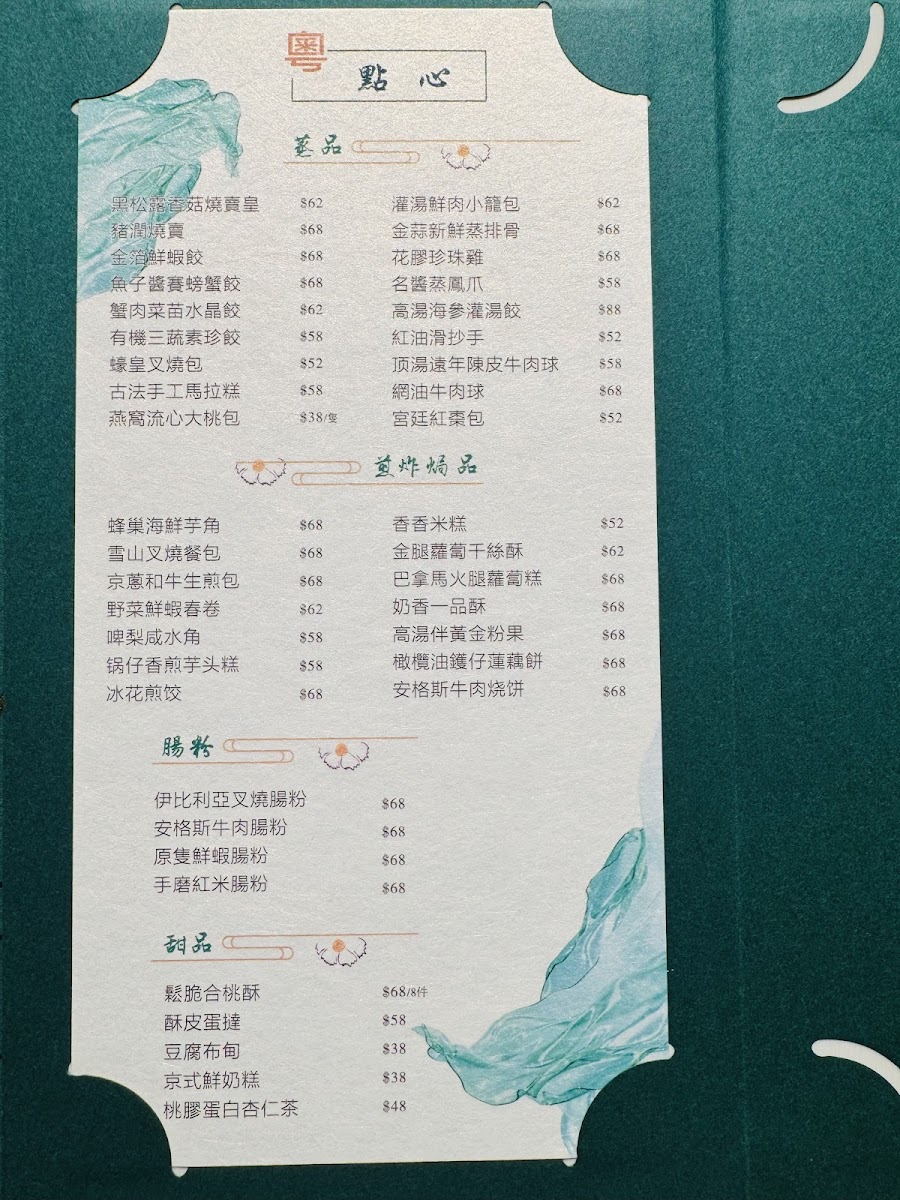 粵
點心
蒸品
黑松露香菇燒賣皇 $62
豬潤燒賣 $68
金箔鮮蝦餃 $68
魚子醬賽螃蟹餃 $68
蟹肉菜苗水晶餃 $62
有機三蔬素珍餃 $58
蠔皇叉燒包 $52
古法手工馬拉糕 $58
燕窩流心大桃包 $38/隻
灌湯鮮肉小籠包 $62
金蒜新鮮蒸排骨 $68
花膠珍珠雞 $68
名醬蒸鳳爪 $58
高湯海參灌湯餃 $88
紅油滑抄手 $52
顶湯遠年陳皮牛肉球 $58
網油牛肉球 $68
宮廷紅棗包 $52
煎炸焗品
蜂巢海鮮芋角 $68
雪山叉燒餐包 $68
京蔥和牛生煎包 $68
野菜鮮蝦春卷 $62
啤梨咸水角 $58
锅仔香煎芋头糕 $58
冰花煎饺 $68
香香米糕 $52
金腿蘿蔔千絲酥 $62
巴拿馬火腿蘿蔔糕 $68
奶香一品酥 $68
高湯伴黃金粉果 $68
橄欖油鑊仔蓮藕餅 $68
安格斯牛肉烧饼 $68
腸粉
伊比利亞叉燒腸粉 $68
安格斯牛肉腸粉 $68
原隻鮮蝦腸粉 $68
手磨紅米腸粉 $68
甜品
鬆脆合桃酥 $68/8件
酥皮蛋撻 $58
豆腐布甸 $38
京式鮮奶糕 $38
桃膠蛋白杏仁茶 $48